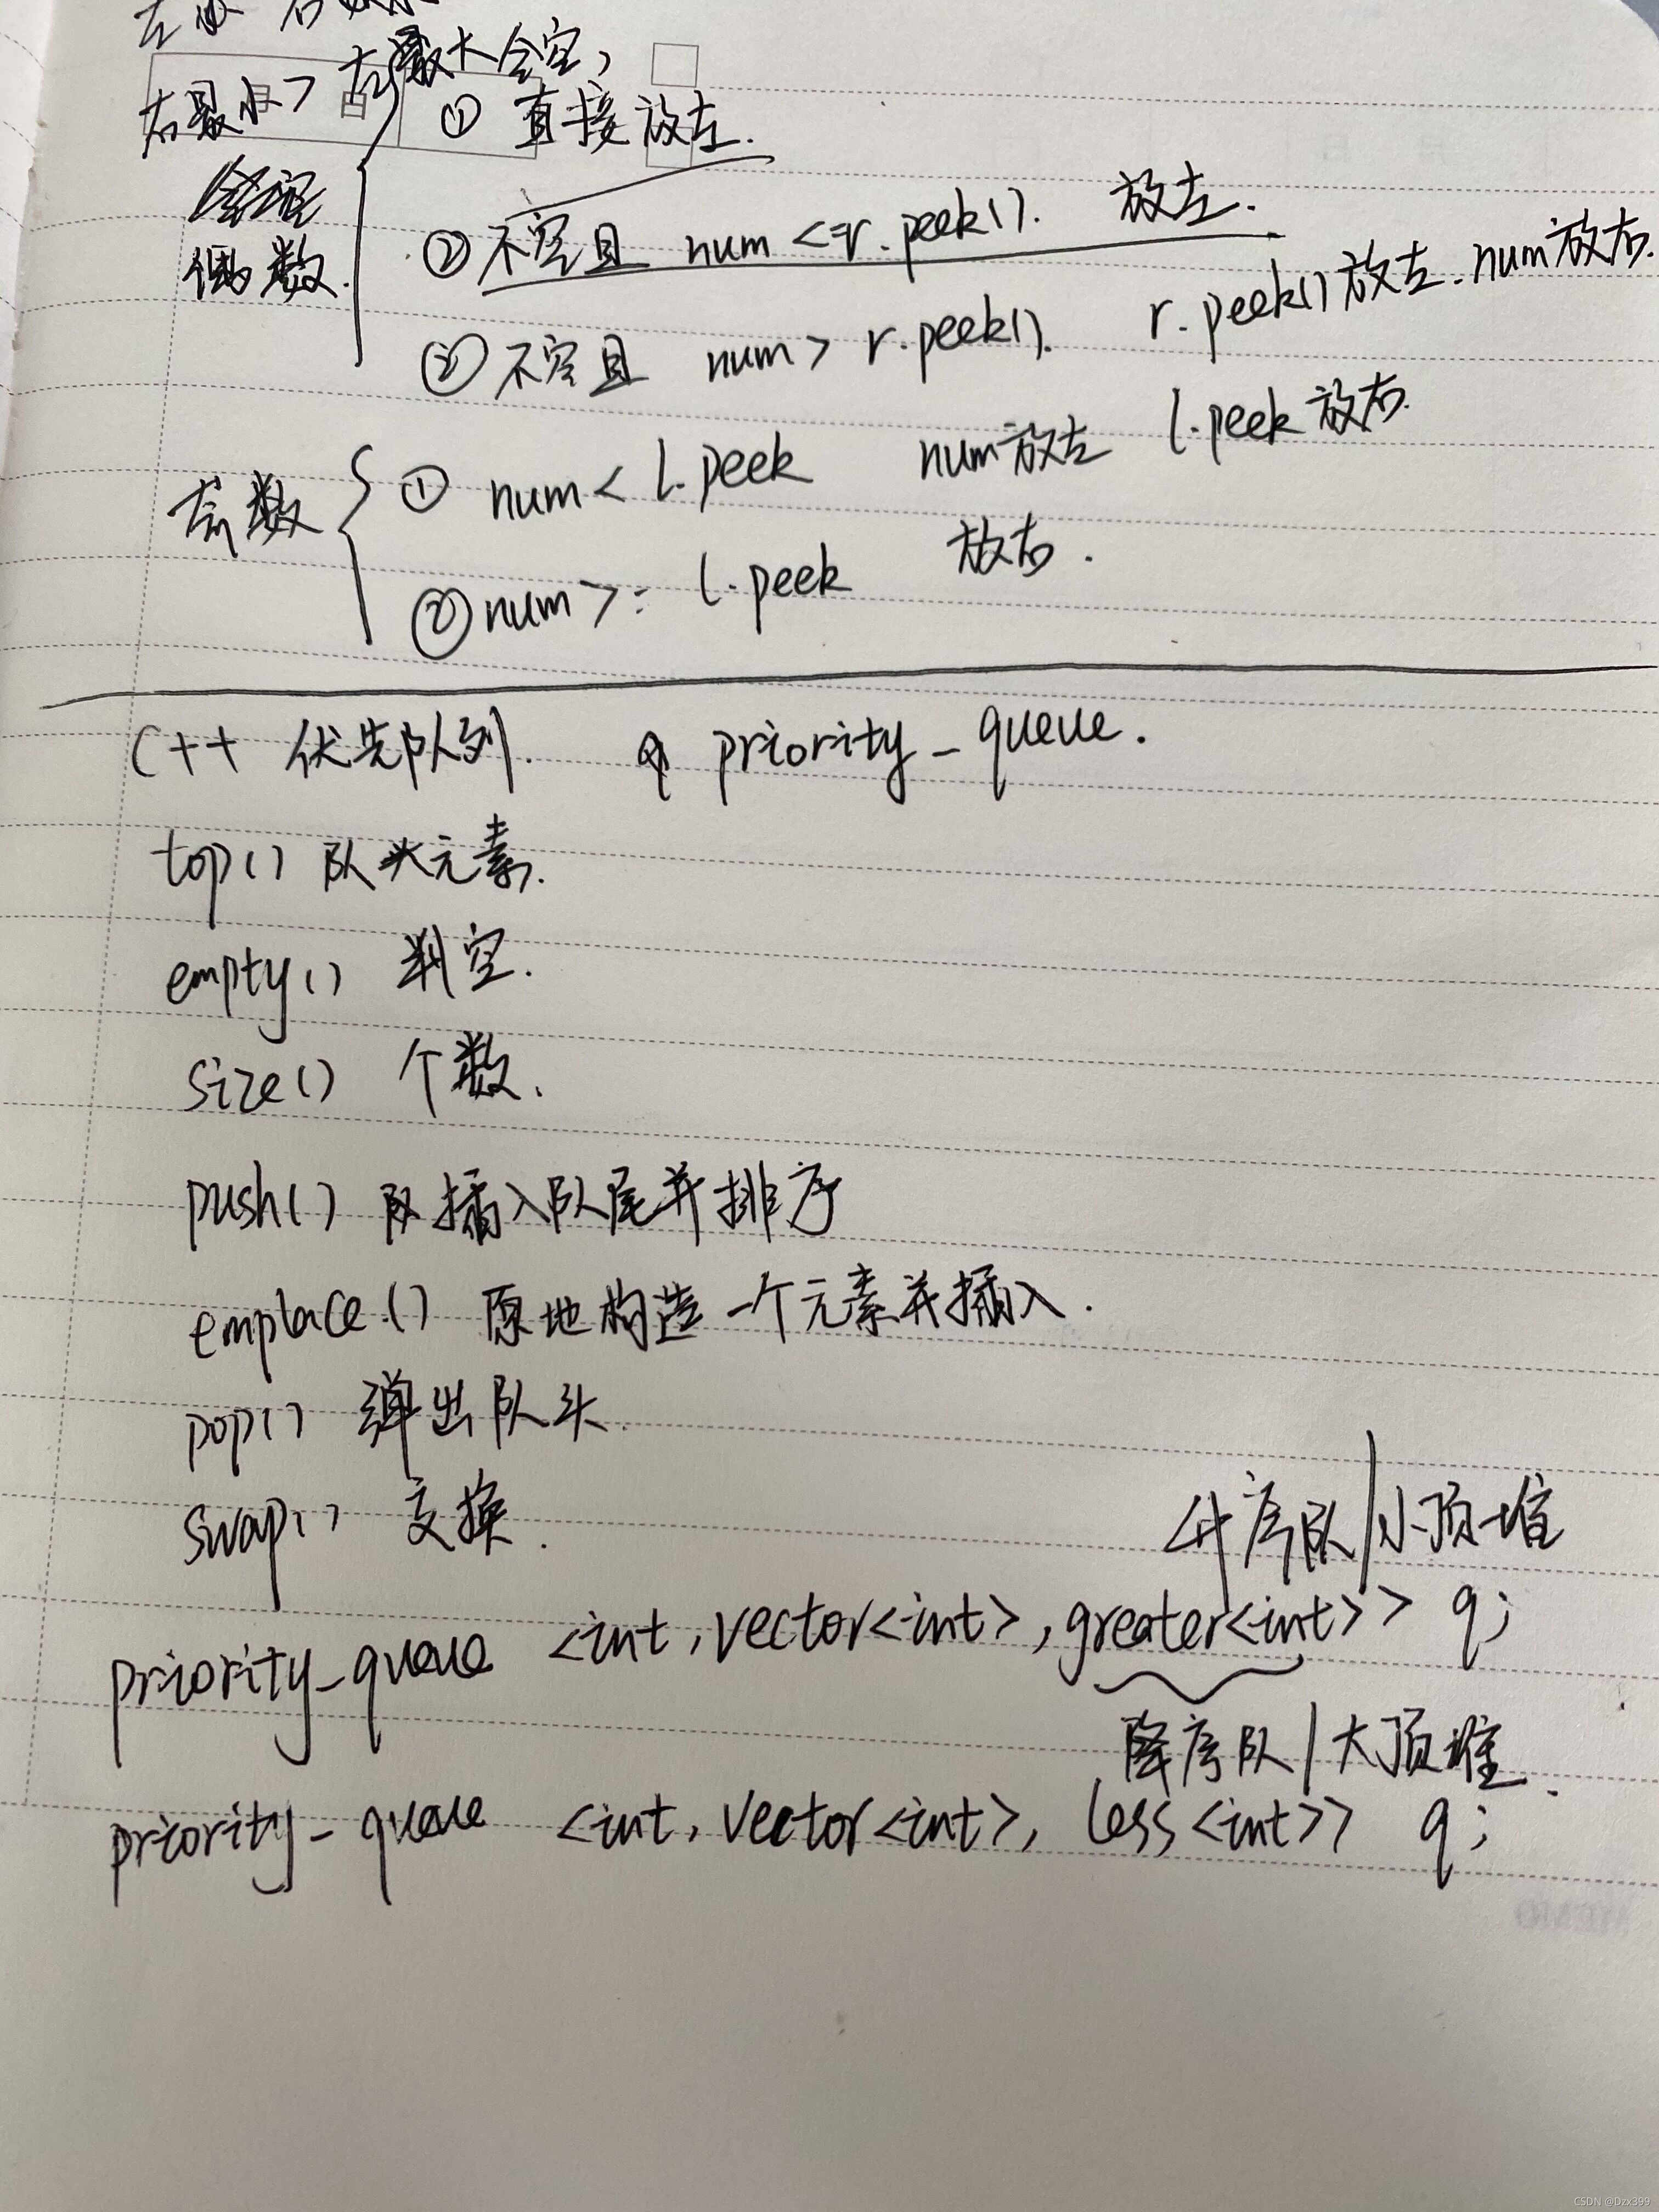 右最小>左最大 全空,
① 直接放左.
偶数.
② 不空且 num <= r.peek(). 放左.
② 不空且 num > r.peek(). r.peek()放左. num放右.
奇数
① num < l.peek num放左 l.peek放右.
② num >= l.peek 放右.
C++ 优先队列. priority_queue.
top() 队头元素.
empty() 判空.
size() 个数.
push() 插入队尾并排序
emplace() 原地构造一个元素并插入.
pop() 弹出队头.
swap() 交换.
升序队/小顶堆
priority_queue <int, vector<int>, greater<int>> q;
降序队/大顶堆.
priority_queue <int, vector<int>, less<int>> q;
CSDN @Dzx399